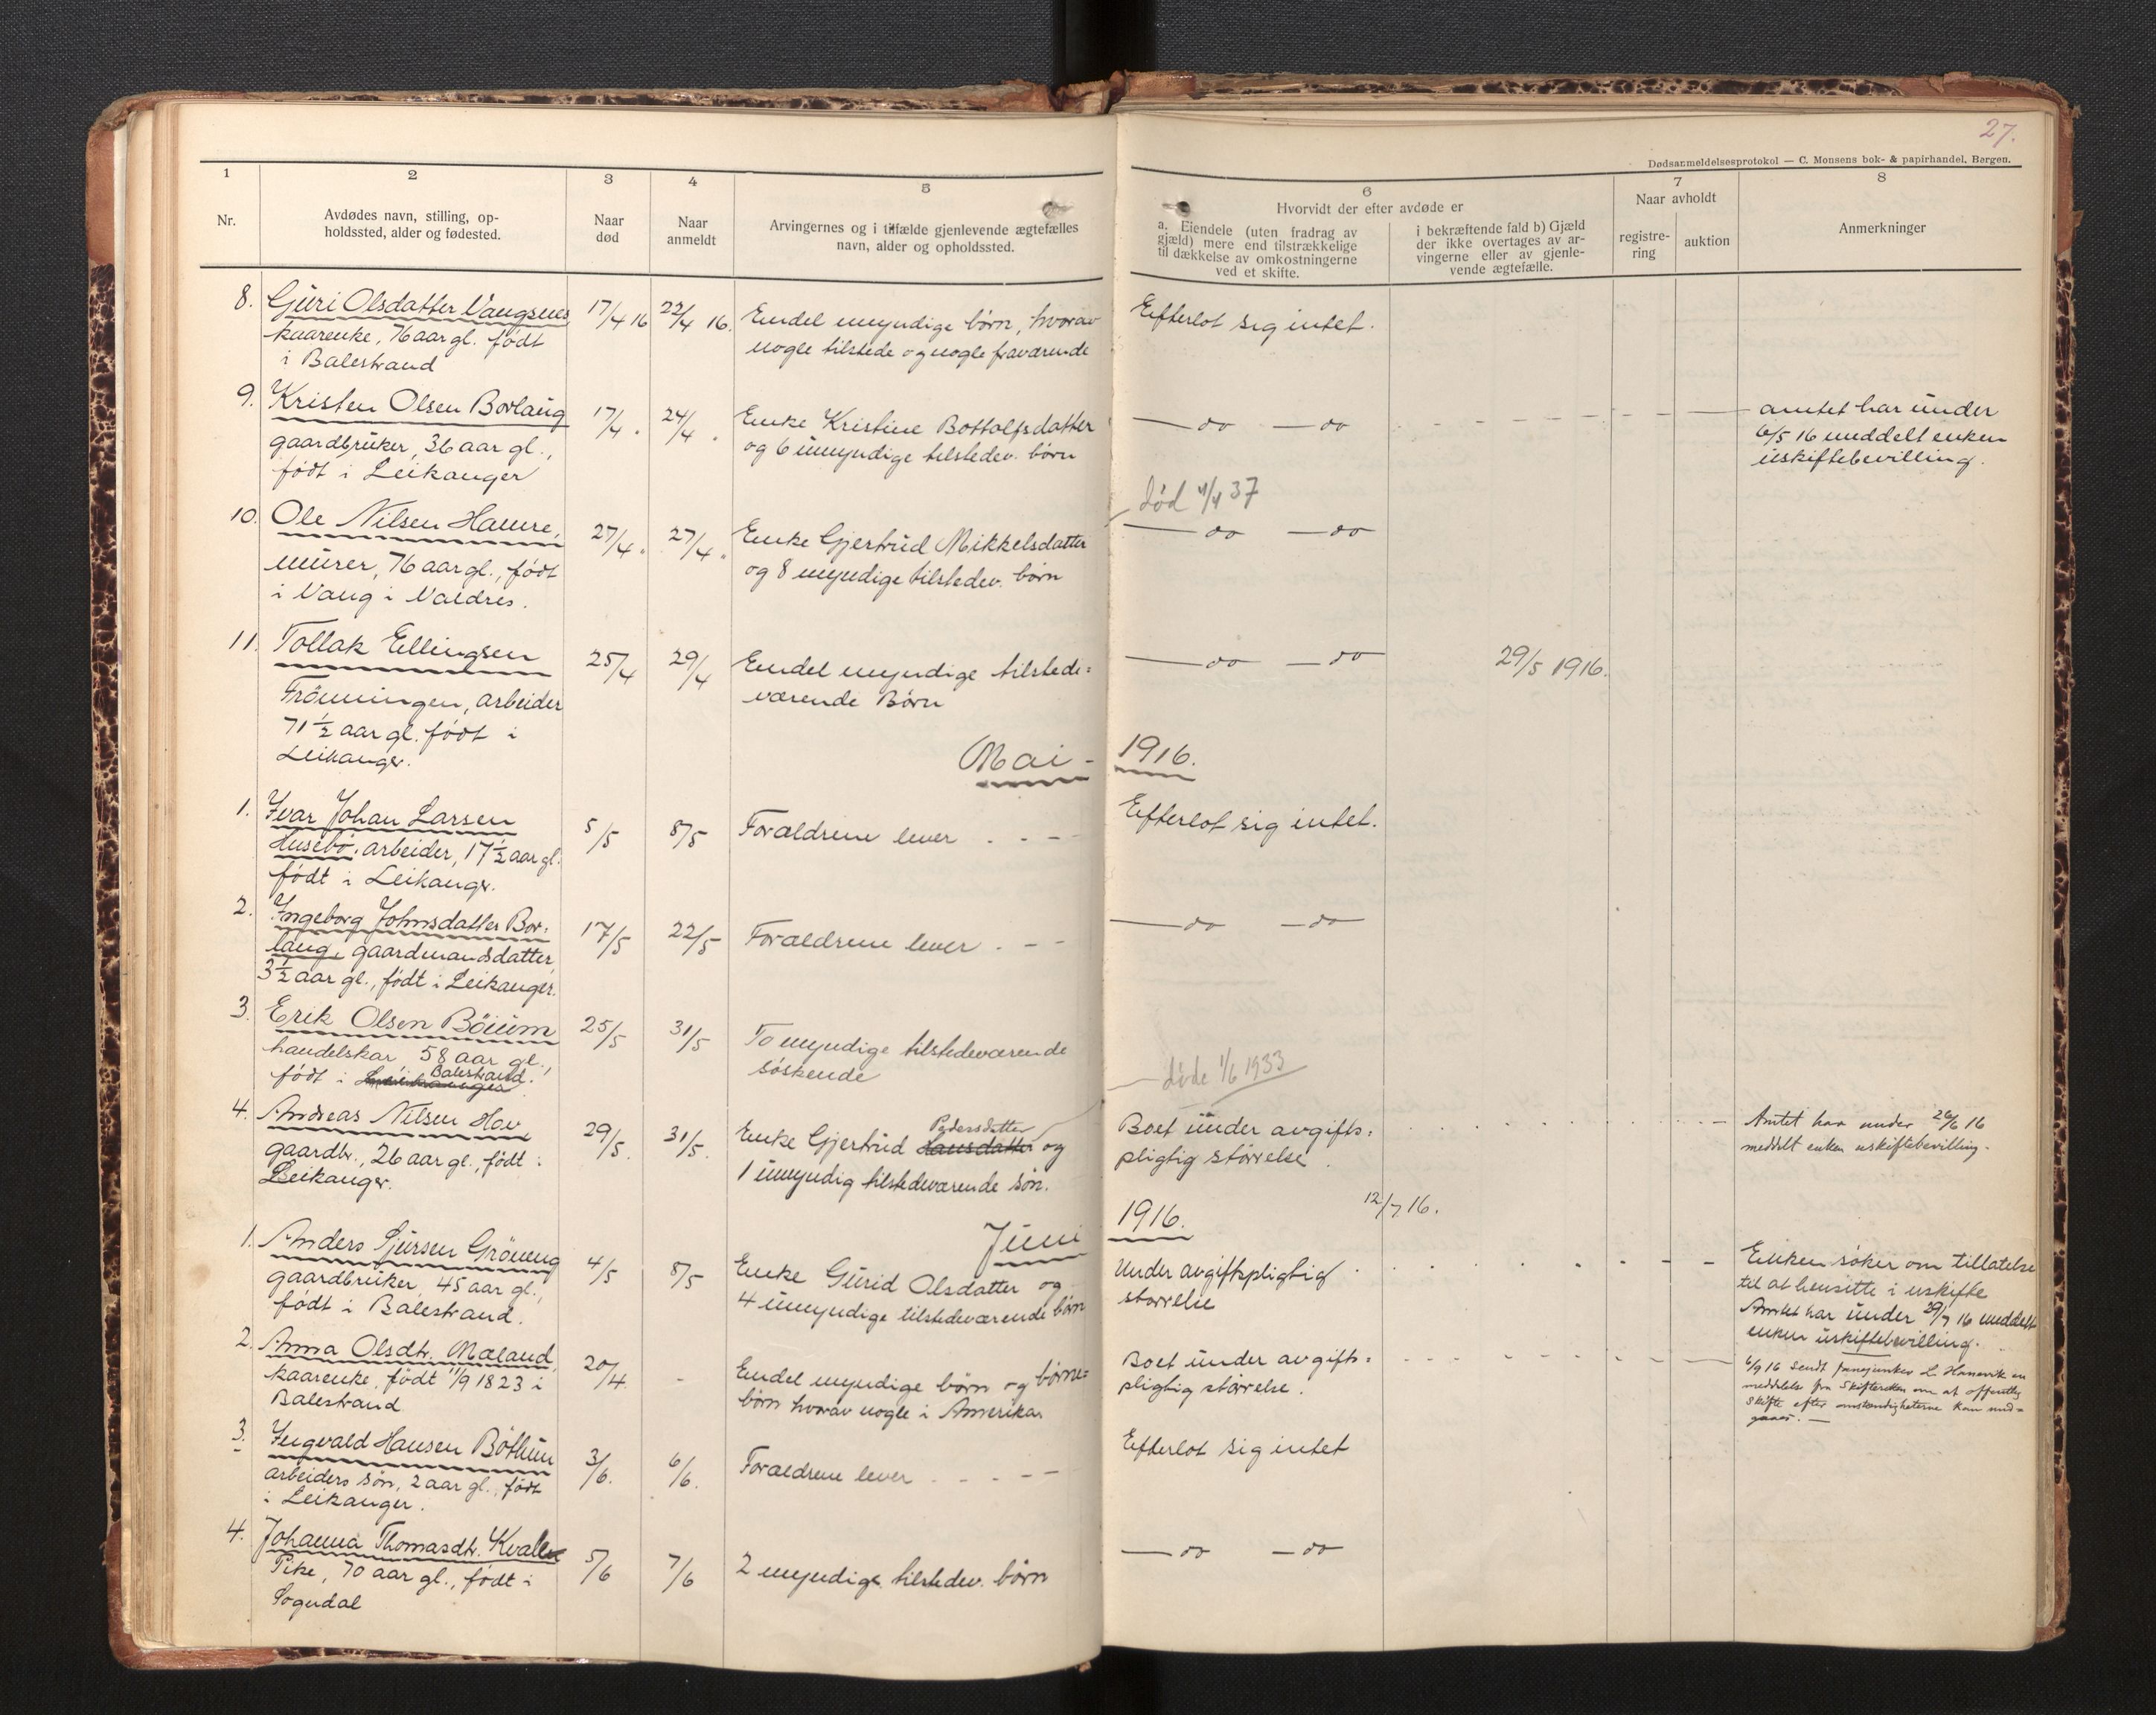 27.
Dødsanmeldelsesprotokol — C. Monsens bok- & papirhandel, Bergen.
1
2
3
4
5
6
7
8
Nr.
Avdødes navn, stilling, op-
holdssted, alder og fødested.
Naar
død
Naar
anmeldt
Arvingernes og i tilfælde gjenlevende ægtefælles
navn, alder og opholdssted.
Hvorvidt der efter avdøde er
a. Eiendele (uten fradrag av
gjæld) mere end tilstrækkelige
til dækkelse av omkostningerne
ved et skifte.
i bekræftende fald b) Gjæld
der ikke overtages av ar-
vingerne eller av gjenle-
vende ægtefælle.
Naar avholdt
registre-
ring
auktion
Anmerkninger
8. Guri Olsdatter Vangsnes
kaarenke, 76 aar gl. født
i Balestrand
17/4 16
22/4 16.
Endel myndige børn, hvorav
nogle tilstede og nogle fraværende
Efterlot sig intet.
9. Kristen Olsen Borlaug
gaardbruker, 36 aar gl.,
født i Leikanger
17/4 "
24/4 "
Enke Kristine Bottolfsdatter
og 6 umyndige tilstedev. børn
— do — do
amtet har under
6/5 16 meddelt enken
uskiftebevilling.
10. Ole Nilsen Hamre,
murer, 76 aar gl., født
i Vang i Valdres.
27/4 "
27/4 "
Enke Gjertrud Mikkelsdatter
og 8 myndige tilstedev. børn
død 4/4 37
— do — do
11. Tollak Ellingsen
Frönningen, arbeider
71 ½ aar gl. født i
Leikanger.
25/4
29/4
Endel myndige tilstede=
værende Børn
— do — do
29/5 1916.
Mai - 1916.
1. Ivar Johan Larsen
Husebö, arbeider, 17 ½ aar gl.
født i Leikanger.
5/5
8/5
Forældrene lever . - -
Efterlot sig intet.
2. Ingeborg Johnsdatter Bor=
laug, gaardmandsdatter,
3 ½ aar gl., født i Leikanger.
17/5
22/5
Forældrene lever . - -
— do — do
3. Erik Olsen Böium
handelskar, 58 aar gl.,
født i Leikanger Balestrand.
25/5
31/5
To myndige tilstedeværende
søskende
døde 1/6 1933
4. Andreas Nilsen Hov
gaardbr., 26 aar gl., født i
Leikanger.
29/5.
31/5.
Pedersdatter
Enke Gjertrud Hansdatter og
1 umyndig tilstedeværende søn.
Boet under avgifts=
pligtig størrelse.
Amtet har under 26/6 16
meddelt enken uskiftebevilling.
Juni 1916.
12/7 16.
1. Anders Sjursen Gröneng
gaardbruker, 45 aar gl.,
født i Balestrand.
4/5
8/5
Enke Gurid Olsdatter og
4 umyndige tilstedeværende børn
Under avgiftspligtig
størrelse
Enken søker om tillatelse
til at hensitte i uskifte
Amtet har under 29/7 16 meddelt
enken uskiftebevilling.
2. Anna Olsdtr. Mæland,
kaarenke, født 11/9 1823 i
Balestrand
20/4
-
Endel myndige børn og børne=
børn hvorav nogle i Amerika.
Boet under avgifts=
pligtig størrelse.
6/9 16 sendt L. Hamrevik en
meddelelse fra Skifteretten om at offentlig
Skifte efter omstændigheterne kan und=
gaaes. —
3. Ingvald Hansen Böthun
arbeiders søn, 2 aar gl., født
i Leikanger.
3/6.
6/6.
Forældrene lever . - - - -
Efterlot sig intet
4. Johanna Thomasdtr. Kvalen
Pike, 70 aar gl., født i
Sogndal
5/6
7/6
2 myndige tilstedev. børn
— do — do